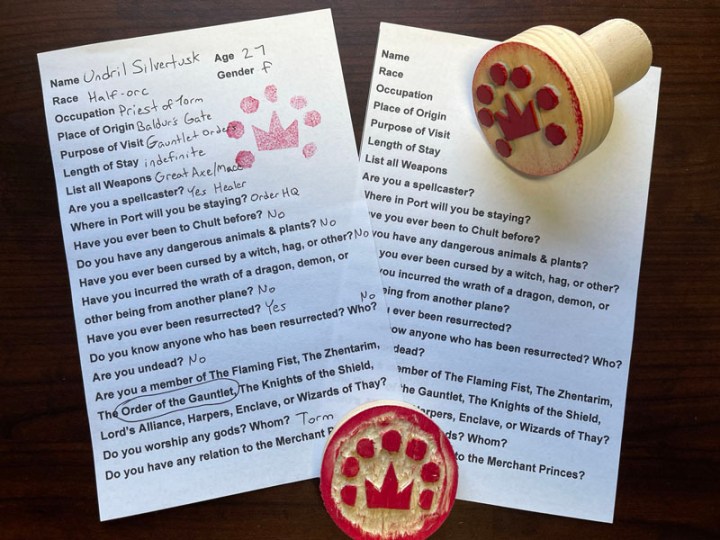 Name Undril Silvertusk Age 27
Race Half-orc Gender f
Occupation Priest of Torm
Place of Origin Baldur's Gate
Purpose of Visit Gauntlet Orders
Length of Stay indefinite
List all Weapons Great Axe/Mace
Are you a spellcaster? Yes Healer
Where in Port will you be staying? Order HQ
Have you ever been to Chult before? No
Do you have any dangerous animals & plants? No
Have you ever been cursed by a witch, hag, or other? No
Have you incurred the wrath of a dragon, demon, or
other being from another plane? No
Have you ever been resurrected? Yes
Do you know anyone who has been resurrected? Who? No
Are you undead? No
Are you a member of The Flaming Fist, The Zhentarim,
The Order of the Gauntlet, The Knights of the Shield,
Lord's Alliance, Harpers, Enclave, or Wizards of Thay?
Do you worship any gods? Whom? Torm
Do you have any relation to the Merchant
Name
Race
Occupation
Place of Origin
Purpose of Visit
Length of Stay
List all Weapons
Are you a spellcaster?
Where in Port will you be staying?
ve you ever been to Chult before?
you have any dangerous animals & plants?
you ever been cursed by a witch, hag, or other?
you incurred the wrath of a dragon, demon, or
being from another plane?
ever been resurrected?
ow anyone who has been resurrected? Who?
dead?
ember of The Flaming Fist, The Zhentarim,
the Gauntlet, The Knights of the Shield,
arpers, Enclave, or Wizards of Thay?
ds? Whom?
to the Merchant Princes?